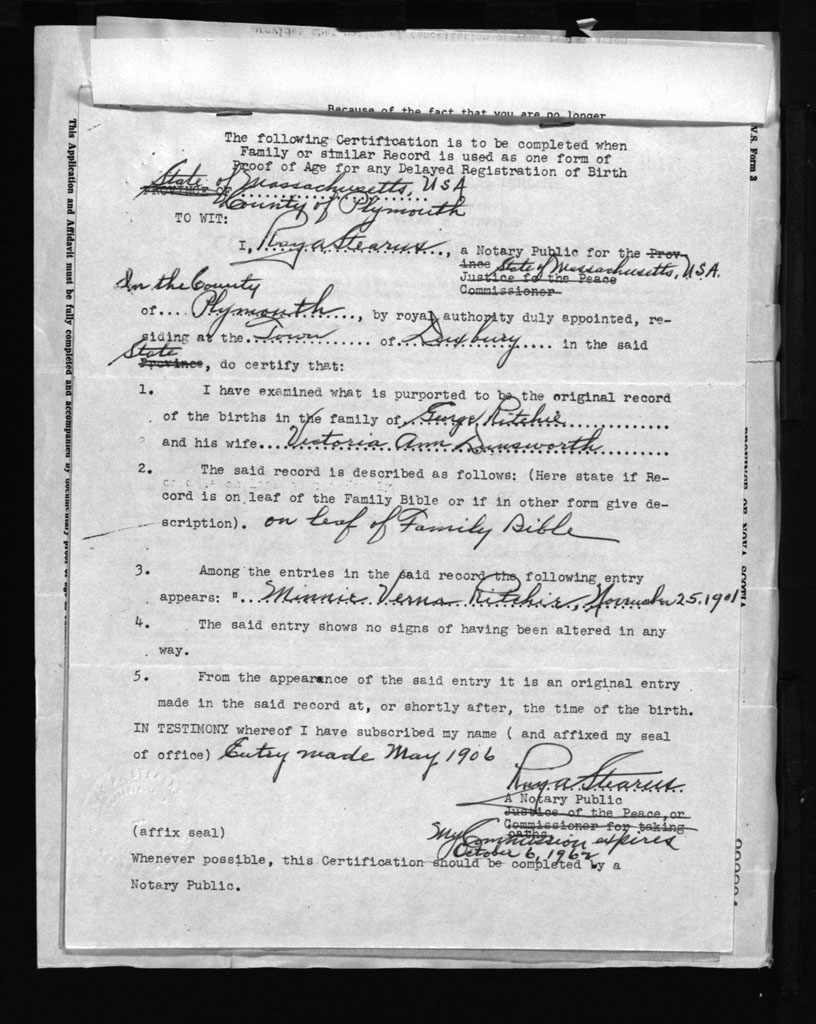 Because of the fact that you are no longer
The following Certification is to be completed when
Family or similar Record is used as one form of
Proof of Age for any Delayed Registration of Birth
State of Massachusetts, USA
PROVINCE OF
County of Plymouth
TO WIT:
I, Ray A Stearns, a Notary Public for the Prov-
ince State of Massachusetts, U.S.A.
Justice fo the Peace
In the County Commissioner
of.... Plymouth...., by royal authority duly appointed, re-
siding at the... Town .... of Duxbury .... in the said
State
Province, do certify that:
1. I have examined what is purported to be the original record
of the births in the family of George Ritchie
and his wife.... Victoria Ann Dunsworth
2. The said record is described as follows: (Here state if Re-
cord is on leaf of the Family Bible or if in other form give de-
scription). on leaf of Family Bible
3. Among the entries in the said record the following entry
appears: "... Minnie Verna Ritchie, November 25, 1901
4. The said entry shows no signs of having been altered in any
way.
5. From the appearance of the said entry it is an original entry
made in the said record at, or shortly after, the time of the birth.
IN TESTIMONY whereof I have subscribed my name ( and affixed my seal
of office) Entry made May 1906
Ray A Stearns
A Notary Public
Justice of the Peace, or
Commissioner for taking
oaths
(affix seal)
My Commission expires
October 6, 1962
Whenever possible, this Certification should be completed by a
Notary Public.
This Application and Affidavit must be fully completed and accompanied by
V.S. Form 3
PROVINCE OF NOVA SCOTIA